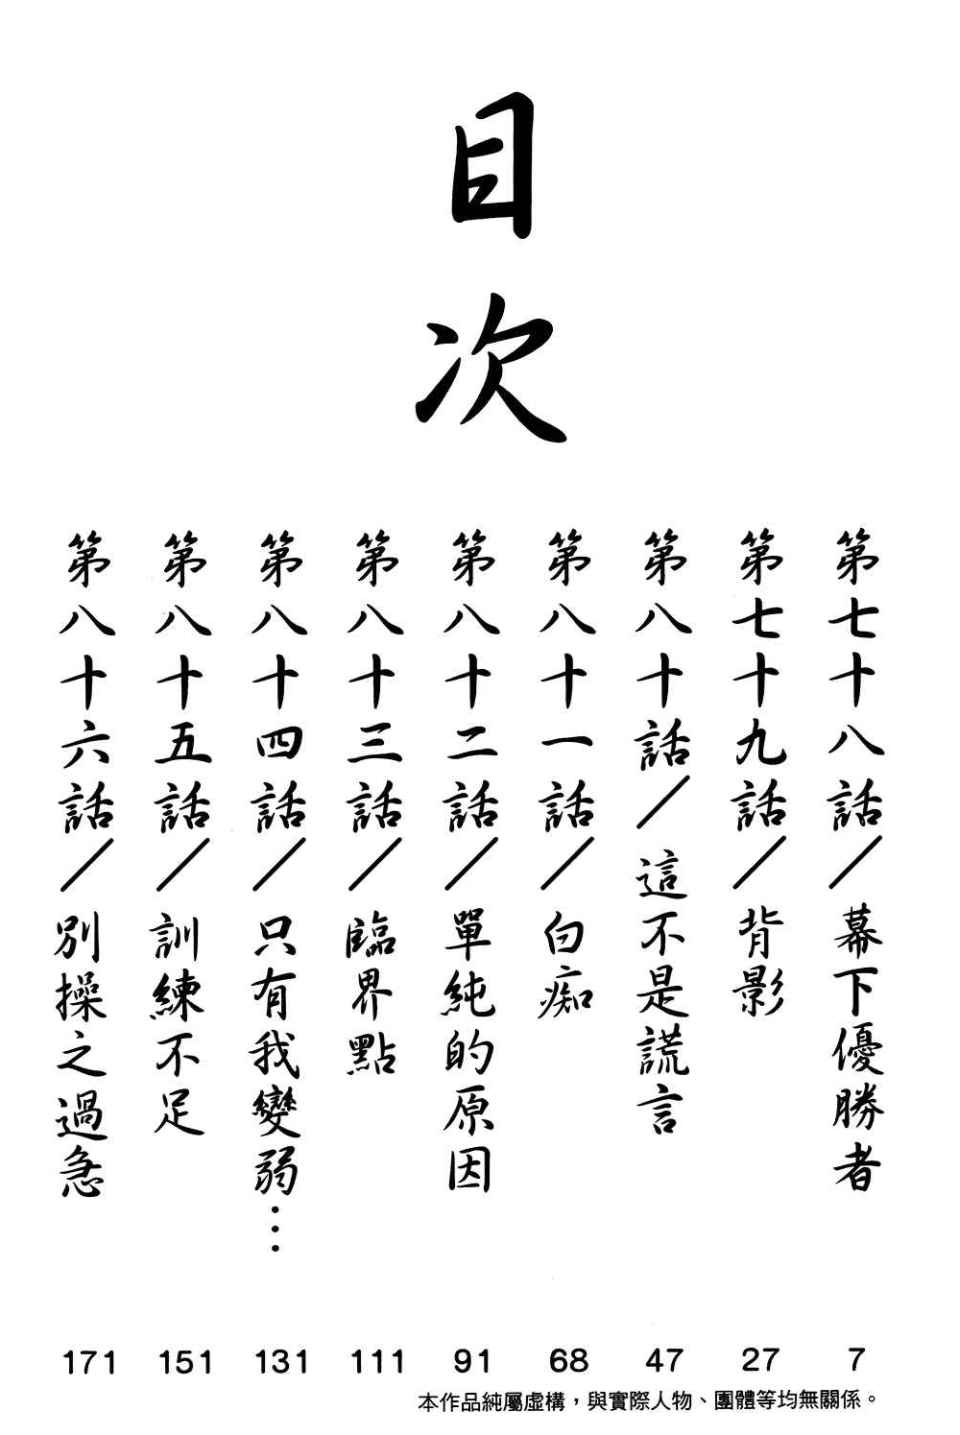 目次
第七十八話／幕下優勝者 7
第七十九話／背影 27
第八十話／這不是謊言 47
第八十一話／白痴 68
第八十二話／單純的原因 91
第八十三話／臨界點 111
第八十四話／只有我變弱… 131
第八十五話／訓練不足 151
第八十六話／別操之過急 171
本作品純屬虛構，與實際人物、團體等均無關係。